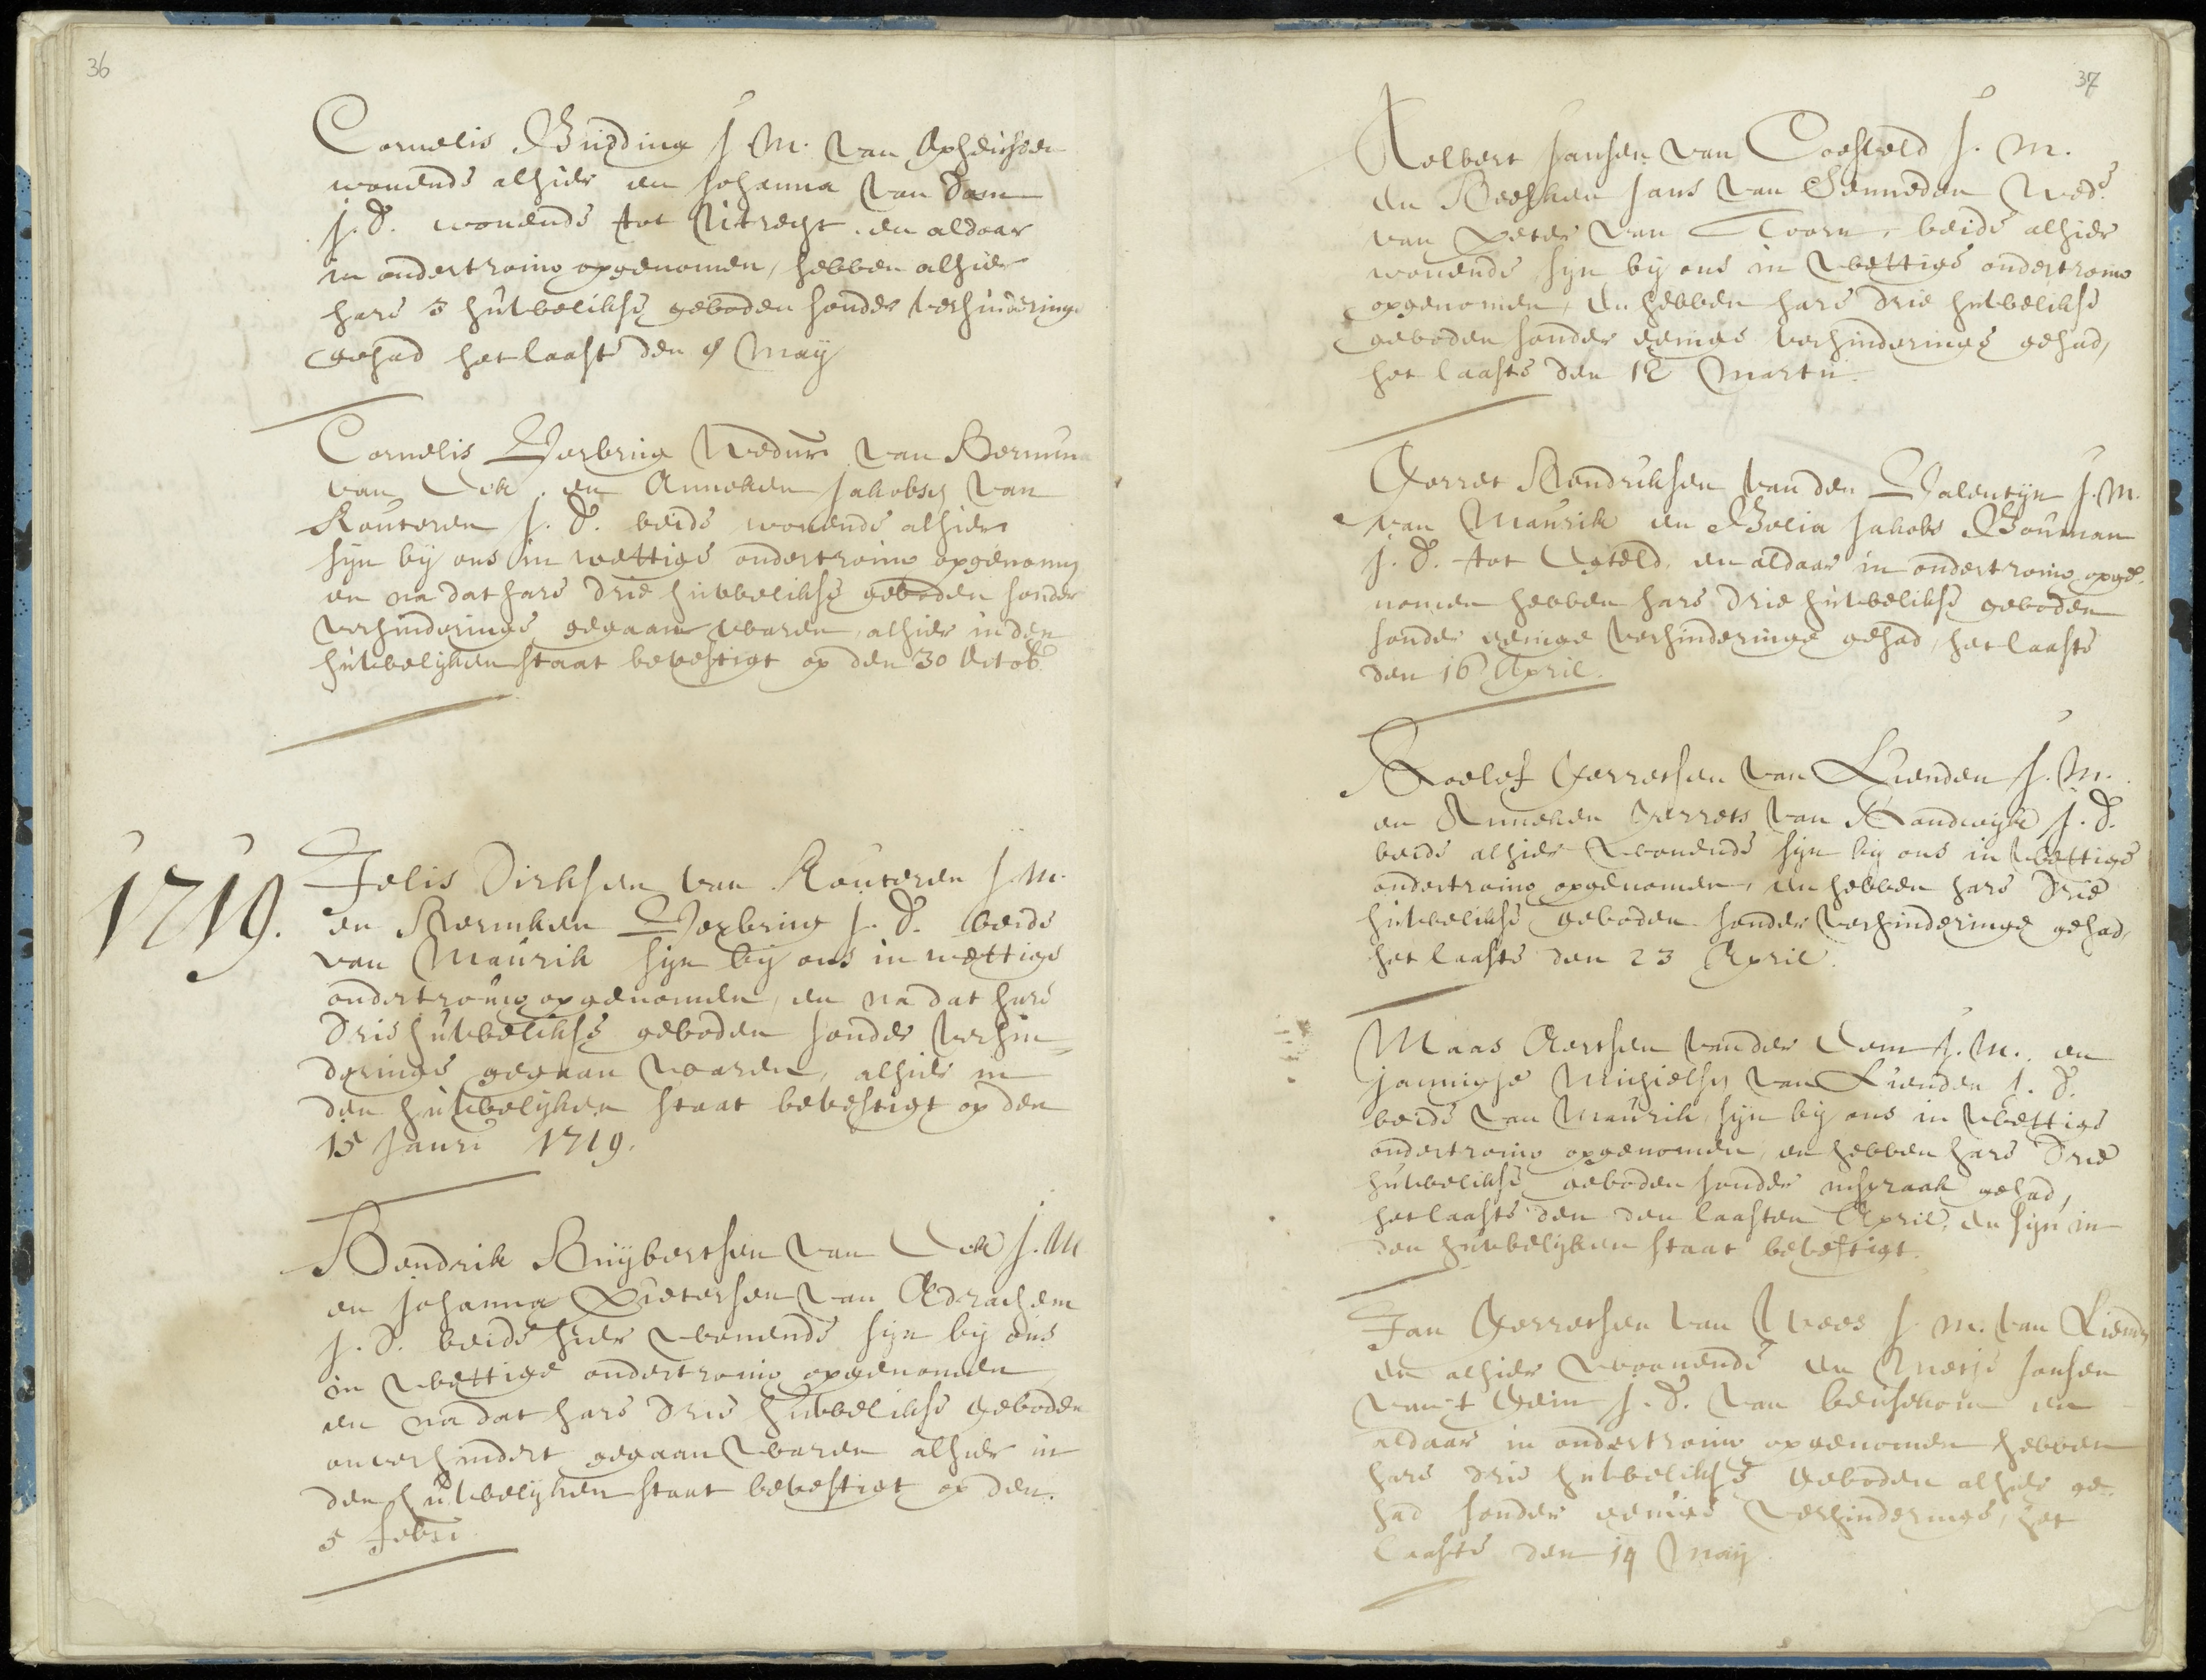 36
Cornelis Budding J. M. van Opheusden
wonende alhier en Johanna van Dam
j. d. wonende tot Uitrecht en aldaar
in ondertrouw opgenomen, hebben alhier
hare 3 huwelikse geboden sonder verhinderinge
gehad het laaste den 8 May
Cornelis Verbrug Weduwr van
van Eck, en Anneken Jakobse van
Kouteren j. d. beide wonende alhier
sijn bij ons in wettige ondertrouw opgenomen
en na dat hare drie huwelikse geboden sonder
verhinderinge gegaan waren, alhier in den
huwelijken staat bevestigt op den 30 Octob.
1719.
Jelis Dirksen van Kouteren J. M.
en Hermken Verbrug j. d. beide
van Maurik sijn bij ons in wettige
ondertrouw opgenomen, en na dat hare
drie huwelikse geboden sonder verhin=
deringe gegaan waren, alhier in
den huwelijken staat bevestigt op den
15 Janri 1719.
Hendrik Huijbertsen van Eck J. M
en Johanna Pietersen van
j. d. beide hier wonende sijn bij ons
in wettige ondertrouw opgenomen
en na dat hare drie huwelikse geboden
onverhindert gegaan waren alhier in
den huwelijken staat bevestigt op den
5 Febri
37
Aelbert Jansen van Coesveld J. M.
en Jans van Wed.e
van Peter van Toorn, beide alhier
wonende sijn bij ons in wettige ondertrouw
opgenomen, en hebben hare drie huwelikse
geboden sonder eenige verhinderinge gehad,
het laaste den 12 Martii
Gerret Hendriksen van den Valentijn J. M.
van Maurik en Jakobs Bouman
j. d. tot en aldaar in ondertrouw opge-
nomen hebben hare drie huwelikse geboden
sonder eenige verhinderinge gehad, het laaste
den 16 April.
Roelof Gerretsen van Lienden J. M.
en Anneken Gerrets van Randwijk j. d.
beide alhier wonende sijn bij ons in wettige
ondertrouw opgenomen, en hebben hare drie
huwelikse geboden sonder verhinderinge gehad,
het laaste den 23 April
Maas Aertsen van der Eem J. M. en
Jannigje Michielse van Lienden j. d.
beide van Maurik, sijn bij ons in wettige
ondertrouw opgenomen, en hebben hare drie
huwelikse geboden sonder inspraak gehad,
het laaste den den laasten April, en sijn in
den huwelijken staat bevestigt.
Jan Gerretsen van Wees J. M. van Liend
en alhier woonende en Jansen
van 't j. d. van Beusekom en
aldaar in ondertrouw opgenomen hebben
hare drie huwelikse geboden alhier ge-
had sonder eenige verhinderinge, het
laaste den 14 May